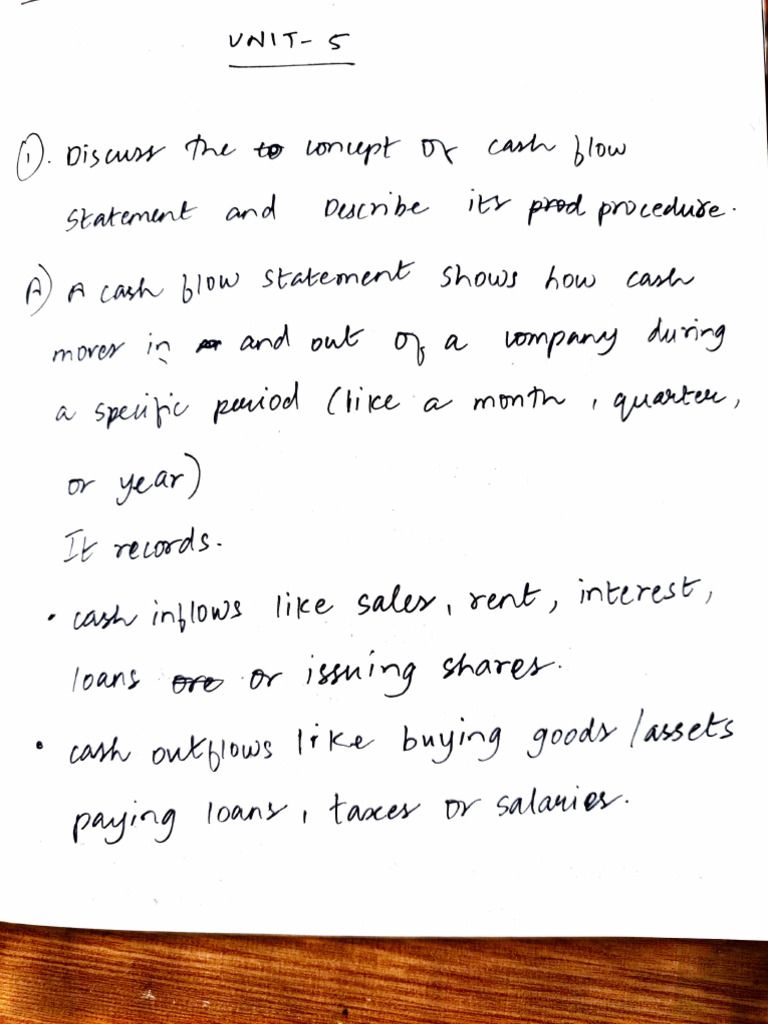 UNIT- 5
①. Discuss the to concept of cash flow
statement and Describe its prod procedure.
A) A cash flow statement shows how cash
moves in and out of a company during
a specific period (like a month, quarter,
or year)
It records.
• cash inflows like sales, rent, interest,
loans ore or issuing shares.
• cash outflows like buying goods/assets
paying loans, taxes or salaries.